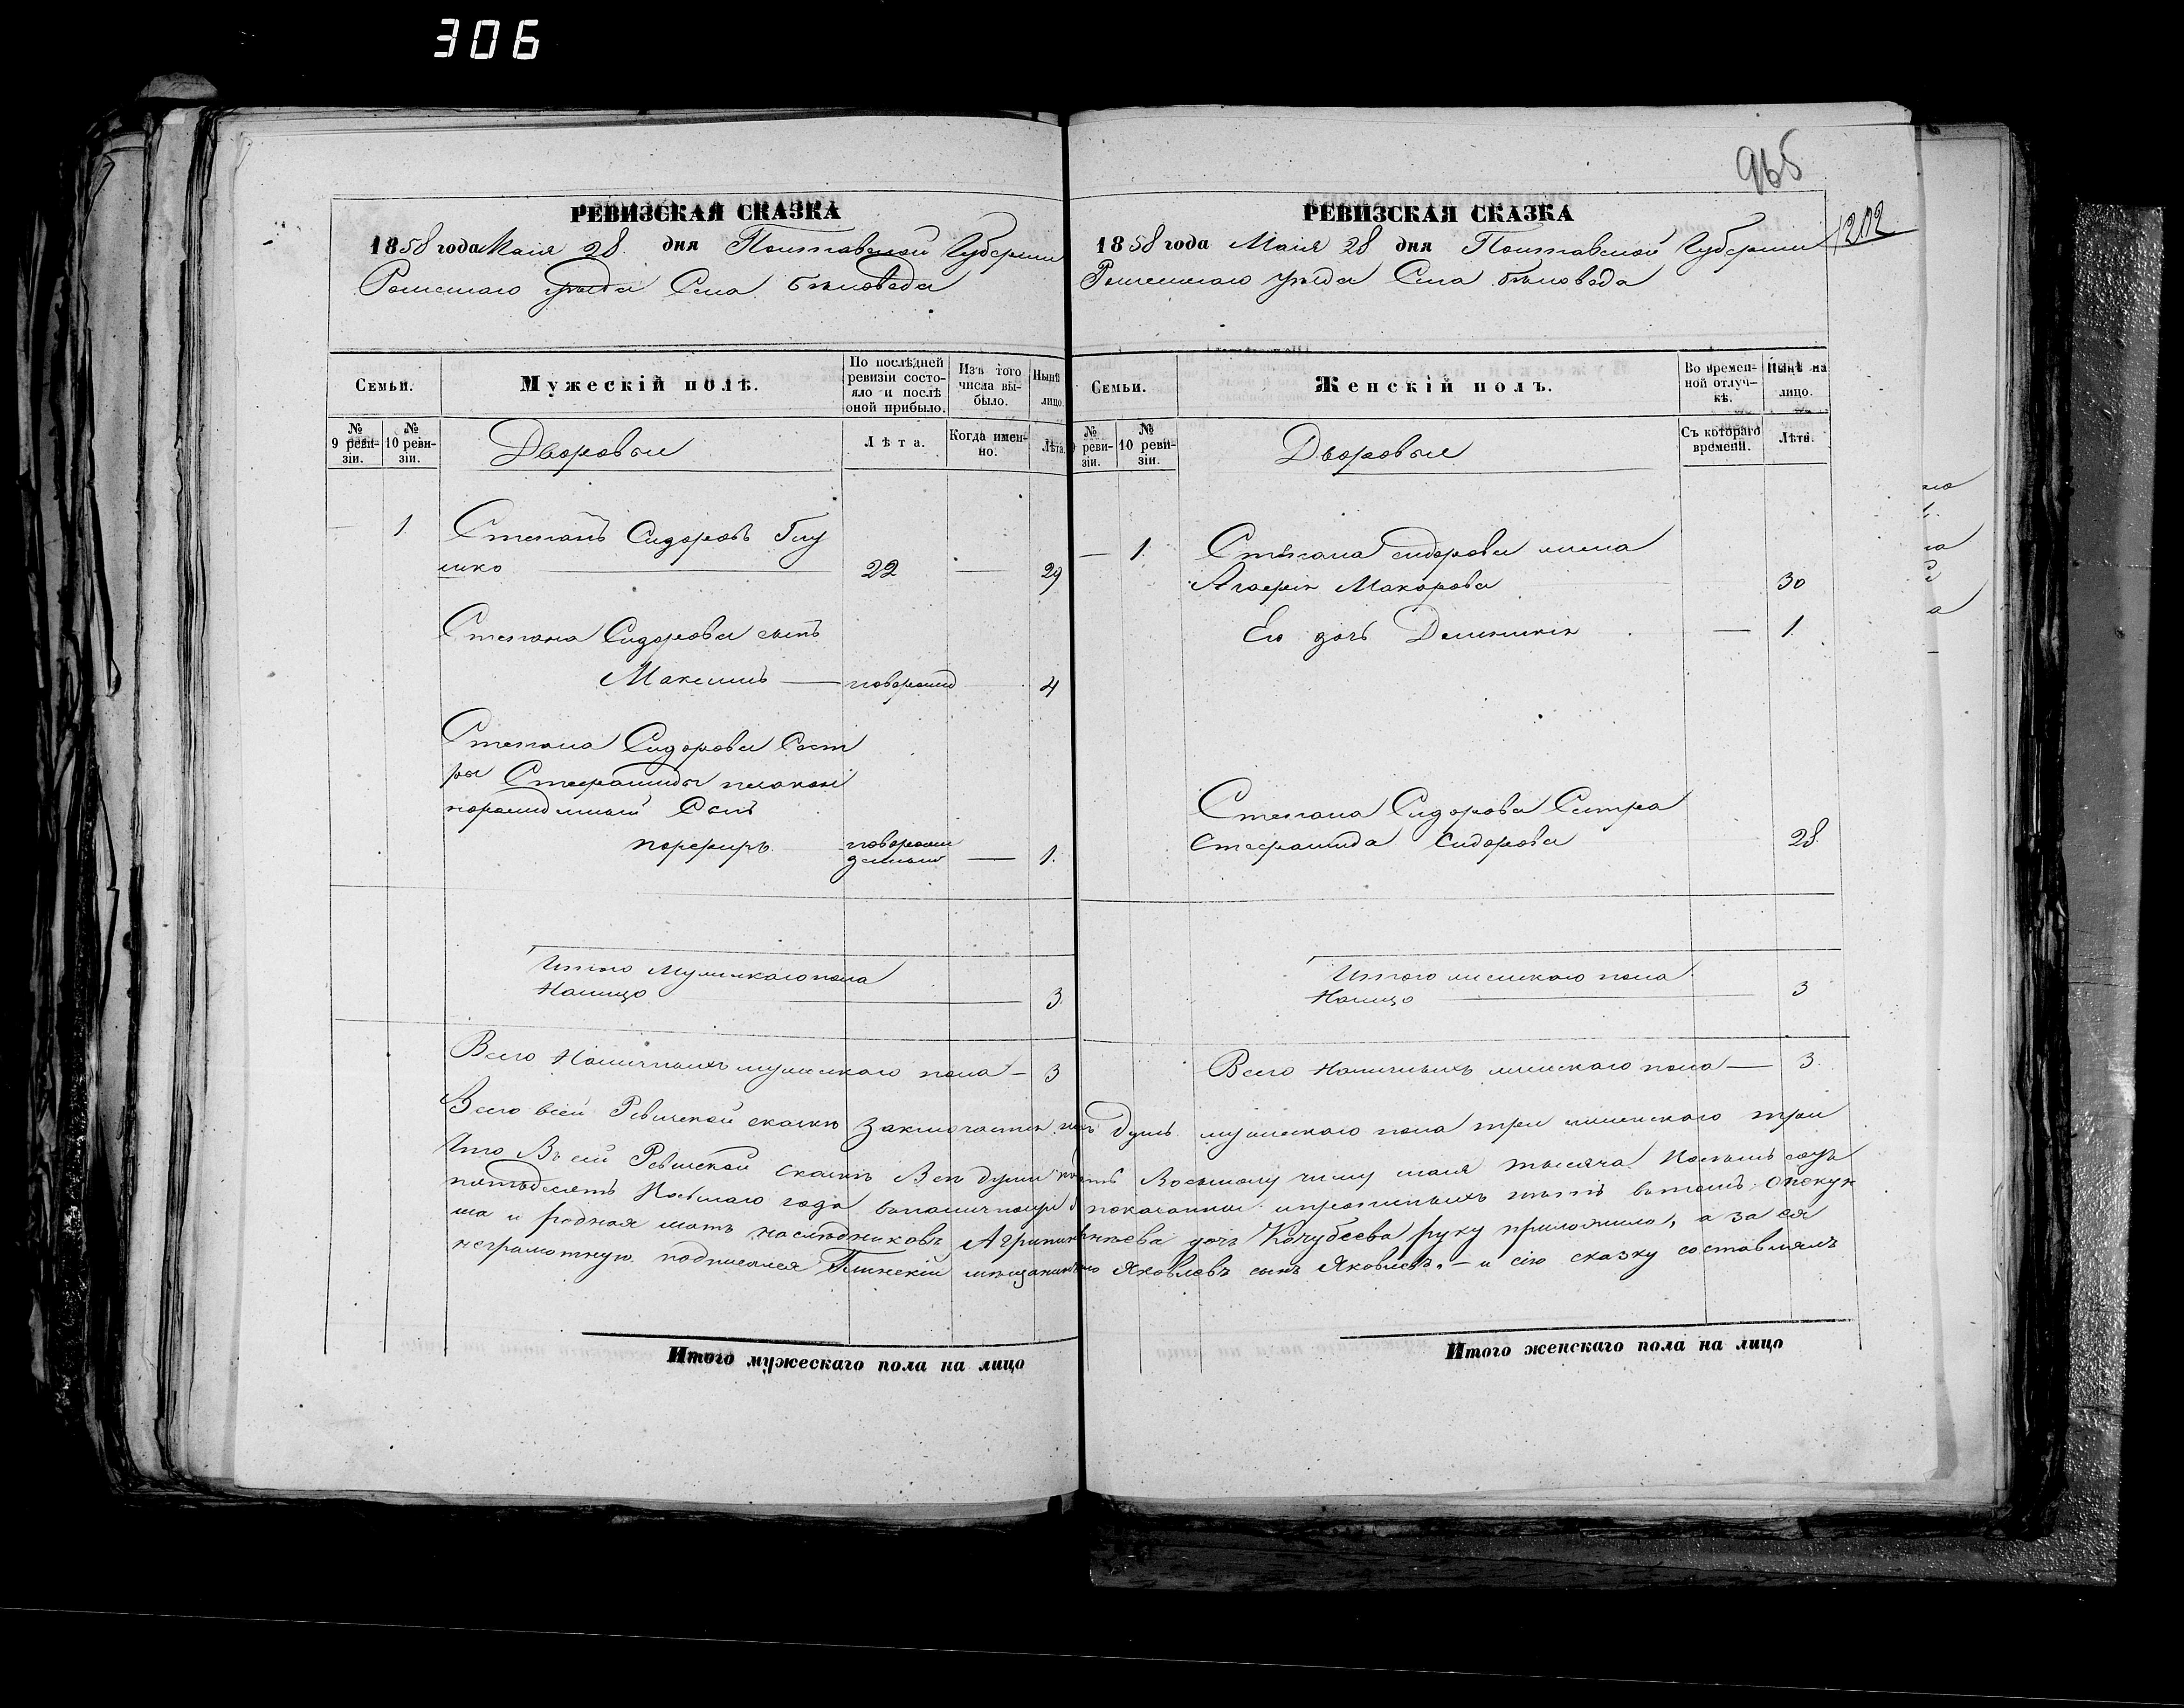 306
РЕВИЗСКАЯ СКАЗКА
1858 года Маія 28 дня Полтавской Губерніи
Роменскаго уѣзда Села Бѣловода
Семьи.
Мужескій полъ.
По послѣдней ревизіи состояло и послѣ оной прибыло.
Изъ того числа выбыло.
Нынѣ лицо.
№ 9 ревизіи.
№ 10 ревизіи.
Дворовыи
Лѣта.
Когда именно.
Лѣта.
— 1 Степанъ Сидоровъ Глу
шко 22 — 29
Степана Сидорова сынъ
Максимъ — новорожд 4
Степана Сидорова Сест
ры Стефаниды
Сынъ
порфиръ новорожденый — 1.
Итого Мужескаго пола
Налицо 3.
Всего Наличныхъ мужескаго пола — 3
965
1202
РЕВИЗСКАЯ СКАЗКА
1858 года Маія 28 дня Полтавской Губерніи
Роменскаго уѣзда Села Бѣловода
Семьи.
Женскій полъ.
Во временной отлучкѣ.
Нынѣ на лицо.
№ ревизіи.
№ 10 ревизіи.
Дворовые
Съ котораго времени.
Лѣта.
— 1. Степана сидорова жена
Агафія Макарова 30
Его дочь — 1.
Степана Сидорова Сестра
Стефанида Сидорова 28.
Итого женскаго пола
Налицо 3
Всего Наличныхъ женскаго пола — 3.
Всего всей Ревизской сказкѣ Заключается душъ мужескаго пола три женскаго три
Что Въ сей Ревизской сказкѣ Всѣ души по Восьмому числу маія тысяча Восемь сотъ
пятьдесятъ Восьмаго года показанны въ томъ опекун
ша и родная мать наслѣдниковъ Агрипина дочь Кочубеева руку приложила, а за ея
неграмотную подписался мѣщанинъ Яковлевъ сынъ Яковлевъ. — и сію сказку составлялъ
Итого мужескаго пола на лицо
Итого женскаго пола на лицо